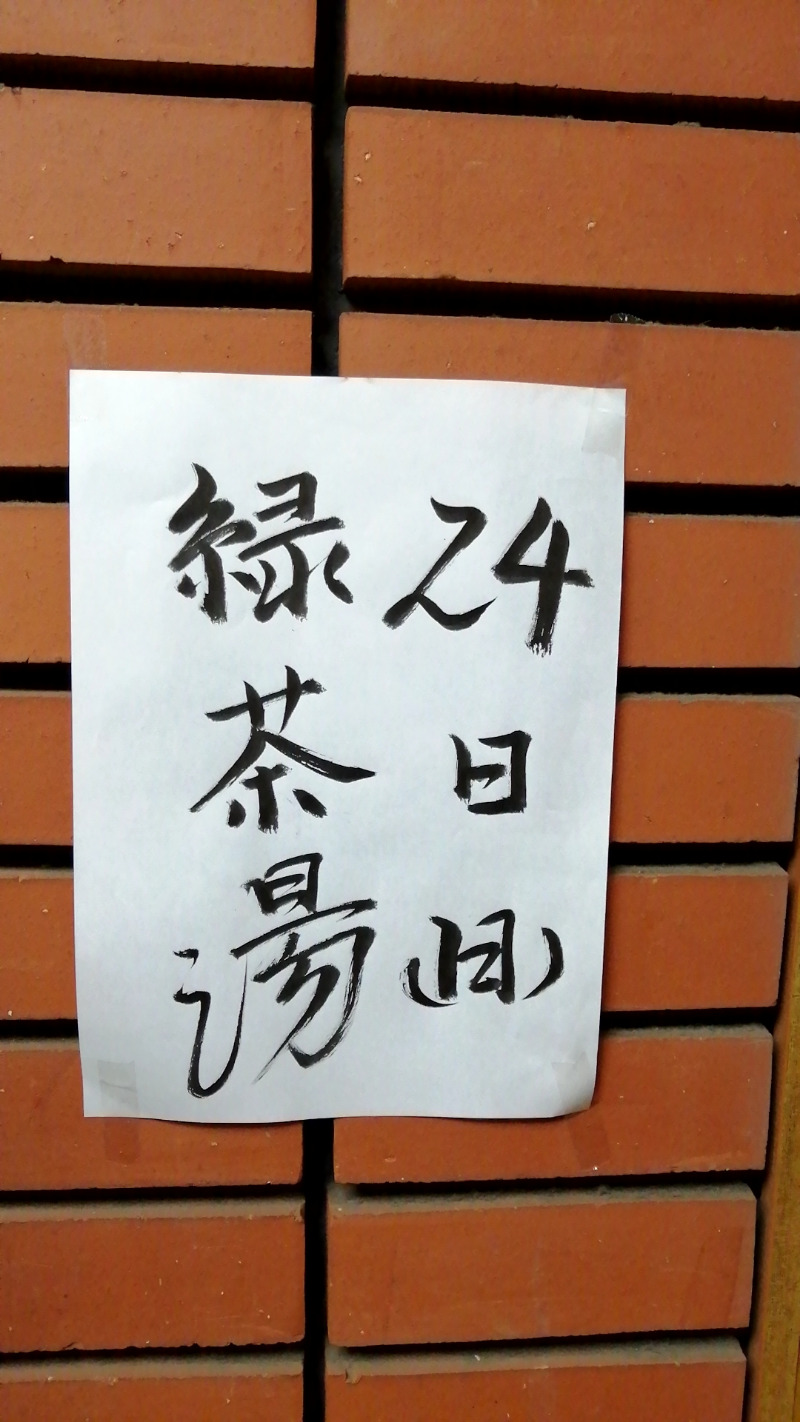 24日(日)
緑茶湯